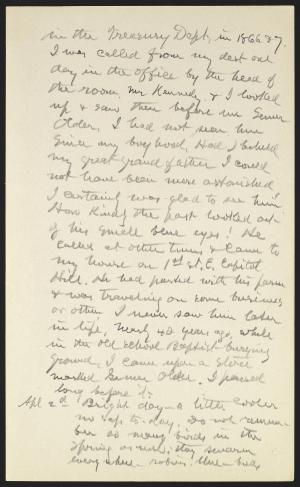 in the Treasury Dept, in 1866 & 7.
I was called from my desk one
day in the office by the head of
the room, Mr Kennedy & I looked
up & saw there before me Elmer
Older. I had not seen him
since my boyhood. Had I beheld
my great grandfather I could
not have been more astonished.
I certainly was glad to see him.
How kindly the past looked out
of his small blue eyes! He
called at other times & came to
my house on 1st St. E. Capitol
Hill. He had parted with his farm
& was traveling on some business
or other. I never saw him later
in life, nearly 40 years ago, while
in the Old School Baptist burying
ground, I came upon a stone
marked Older. I paused
long before it.
Apl 2d Bright day - a little cooler
no sap to-day. Do not remem-
ber so many birds in the
Spring or now: they swarm
every where - robins, blue-birds